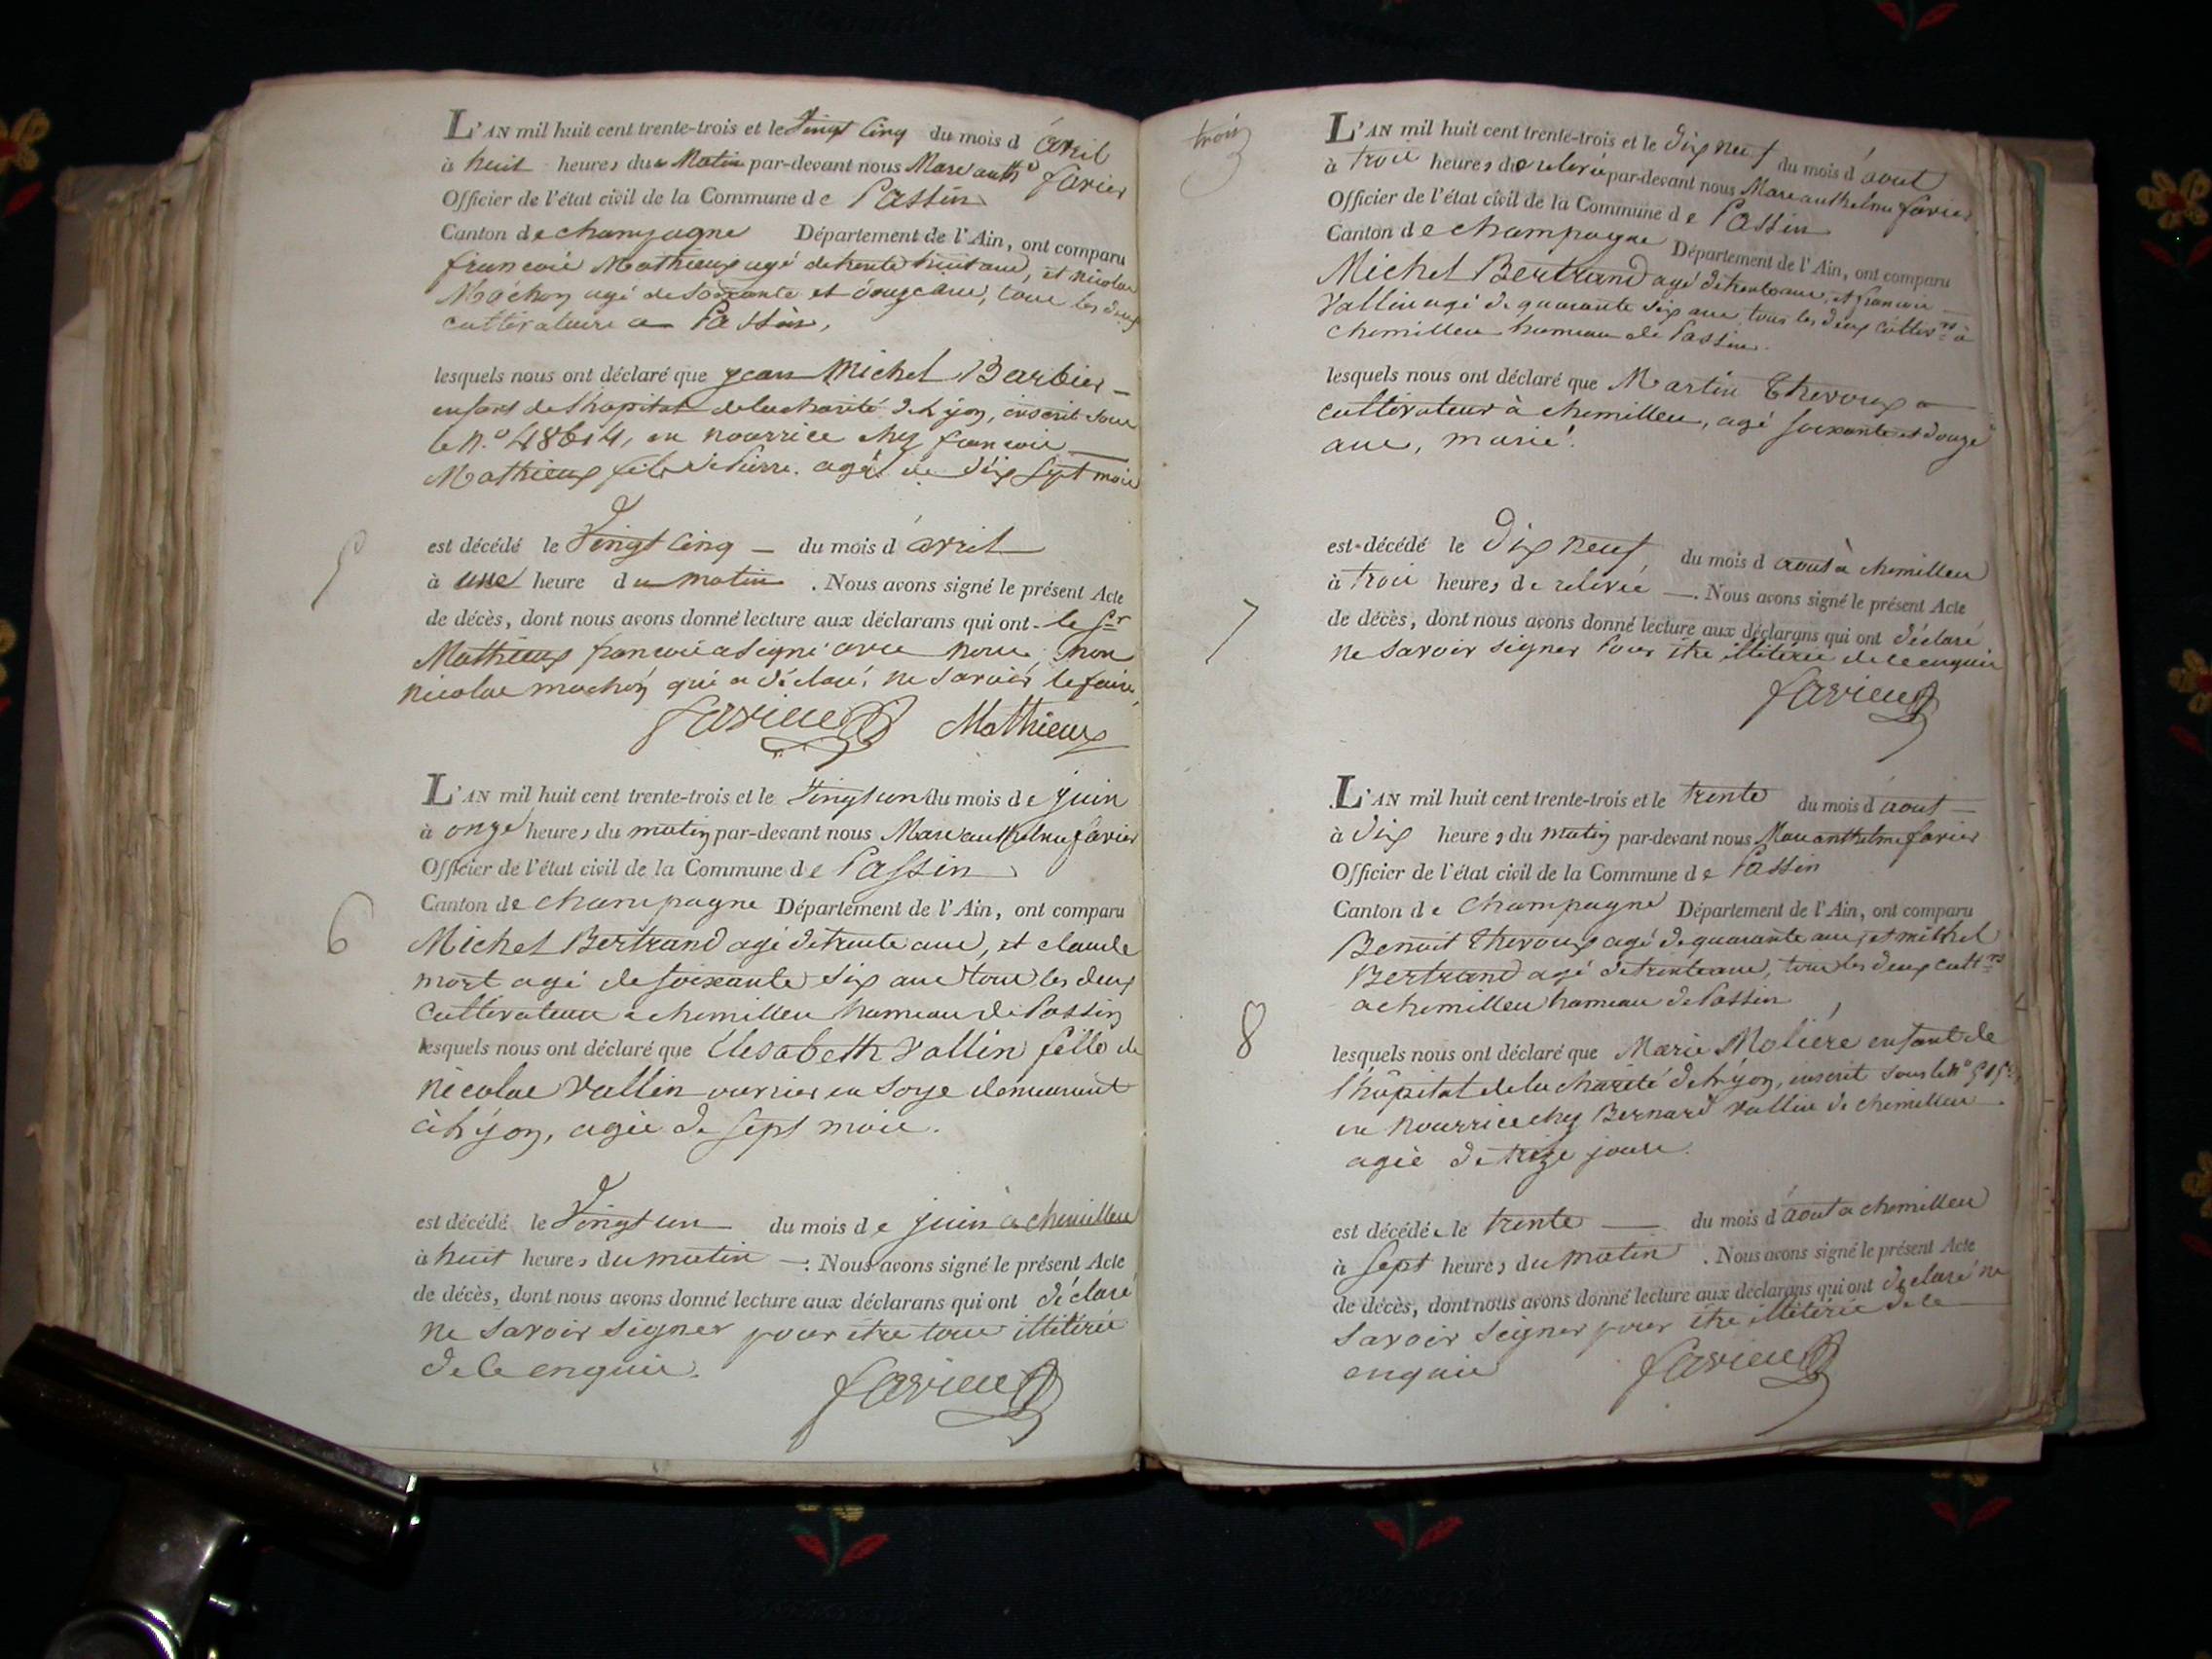 L'AN mil huit cent trente-trois et le Vingt Cinq du mois d'avril
à huit heures du Matin par-devant nous Marc anthe favier
Officier de l'état civil de la Commune de Passin
Canton de champagne Département de l'Ain, ont comparu
francois Mathieux agé de trente huit ans, et nicolas
Machon agé de soixante et douze ans, tous les deux
cultivateurs a Passin,
lesquels nous ont déclaré que jean Michel Barbier
enfant de l'hopital de la charité de Lyon, inscrit sous
le N.º 48614, en nourrice chez francois
Mathieux fils de Pierre. agé de dix sept mois
5
est décédé le Vingt Cinq du mois d'avril
à une heure du matin . Nous avons signé le présent Acte
de décès, dont nous avons donné lecture aux déclarans qui ont le Sr
Mathieux francois a signé avec nous non
nicolas machon qui a déclaré, ne savoir le faire,
favier Mathieux
L'AN mil huit cent trente-trois et le Vingt un du mois de juin
à onze heures du matin par-devant nous Marc anthelme favier
Officier de l'état civil de la Commune de Passin
Canton de champagne Département de l'Ain, ont comparu
6
Michel Bertrand agé de trente ans, et claude
mort agé de soixante six ans tous les deux
cultivateurs a chemilleu hameau de Passin
lesquels nous ont déclaré que Élesabeth Vallin fille de
nicolas Vallin ouvrier en soye demeurant
à Lyon, agée de sept mois.
est décédé le Vingt un du mois de juin a chemilleu
à huit heures du matin . Nous avons signé le présent Acte
de décès, dont nous avons donné lecture aux déclarans qui ont déclaré
ne savoir signer pour être tous illitérés
de ce enquis.
favier
trois
3
L'AN mil huit cent trente-trois et le dix neuf du mois d'aout
à trois heures de relevée par-devant nous Marc anthelme favier
Officier de l'état civil de la Commune de Passin
Canton de champagne Département de l'Ain, ont comparu
Michel Bertrand agé de trente ans, et francois
Vallin agé de quarante six ans, tous les deux cultivrs à
chemilleu hameau de Passin.
lesquels nous ont déclaré que Martin Thevoux
cultivateur à chemilleu, agé soixante et douze
ans, marié.
est décédé le dix neuf du mois d'aout à chemilleu
à trois heures de relevée . Nous avons signé le présent Acte
7
de décès, dont nous avons donné lecture aux déclarans qui ont déclaré
ne savoir signer Pour être illitérés de ce enquis
favier
L'AN mil huit cent trente-trois et le trente du mois d'aout
à dix heures du matin par-devant nous Marc anthelme favier
Officier de l'état civil de la Commune de Passin
Canton de Champagne Département de l'Ain, ont comparu
Benoit Thevoux agé de quarante ans, et michel
Bertrand agé de trente ans, tous les deux cultrs
a chemilleu hameau de Passin
8
lesquels nous ont déclaré que Marie Moliére enfant de
l'hôpital de la charité de Lyon, inscrit sous le nº
en nourrice chez Bernard Vallin de chemilleu
agée de treize jours.
est décédée le trente du mois d'aout a chemilleu
à sept heures du matin . Nous avons signé le présent Acte
de décès, dont nous avons donné lecture aux déclarans qui ont déclaré ne
savoir seigner pour être illitérés de ce
enquis favier